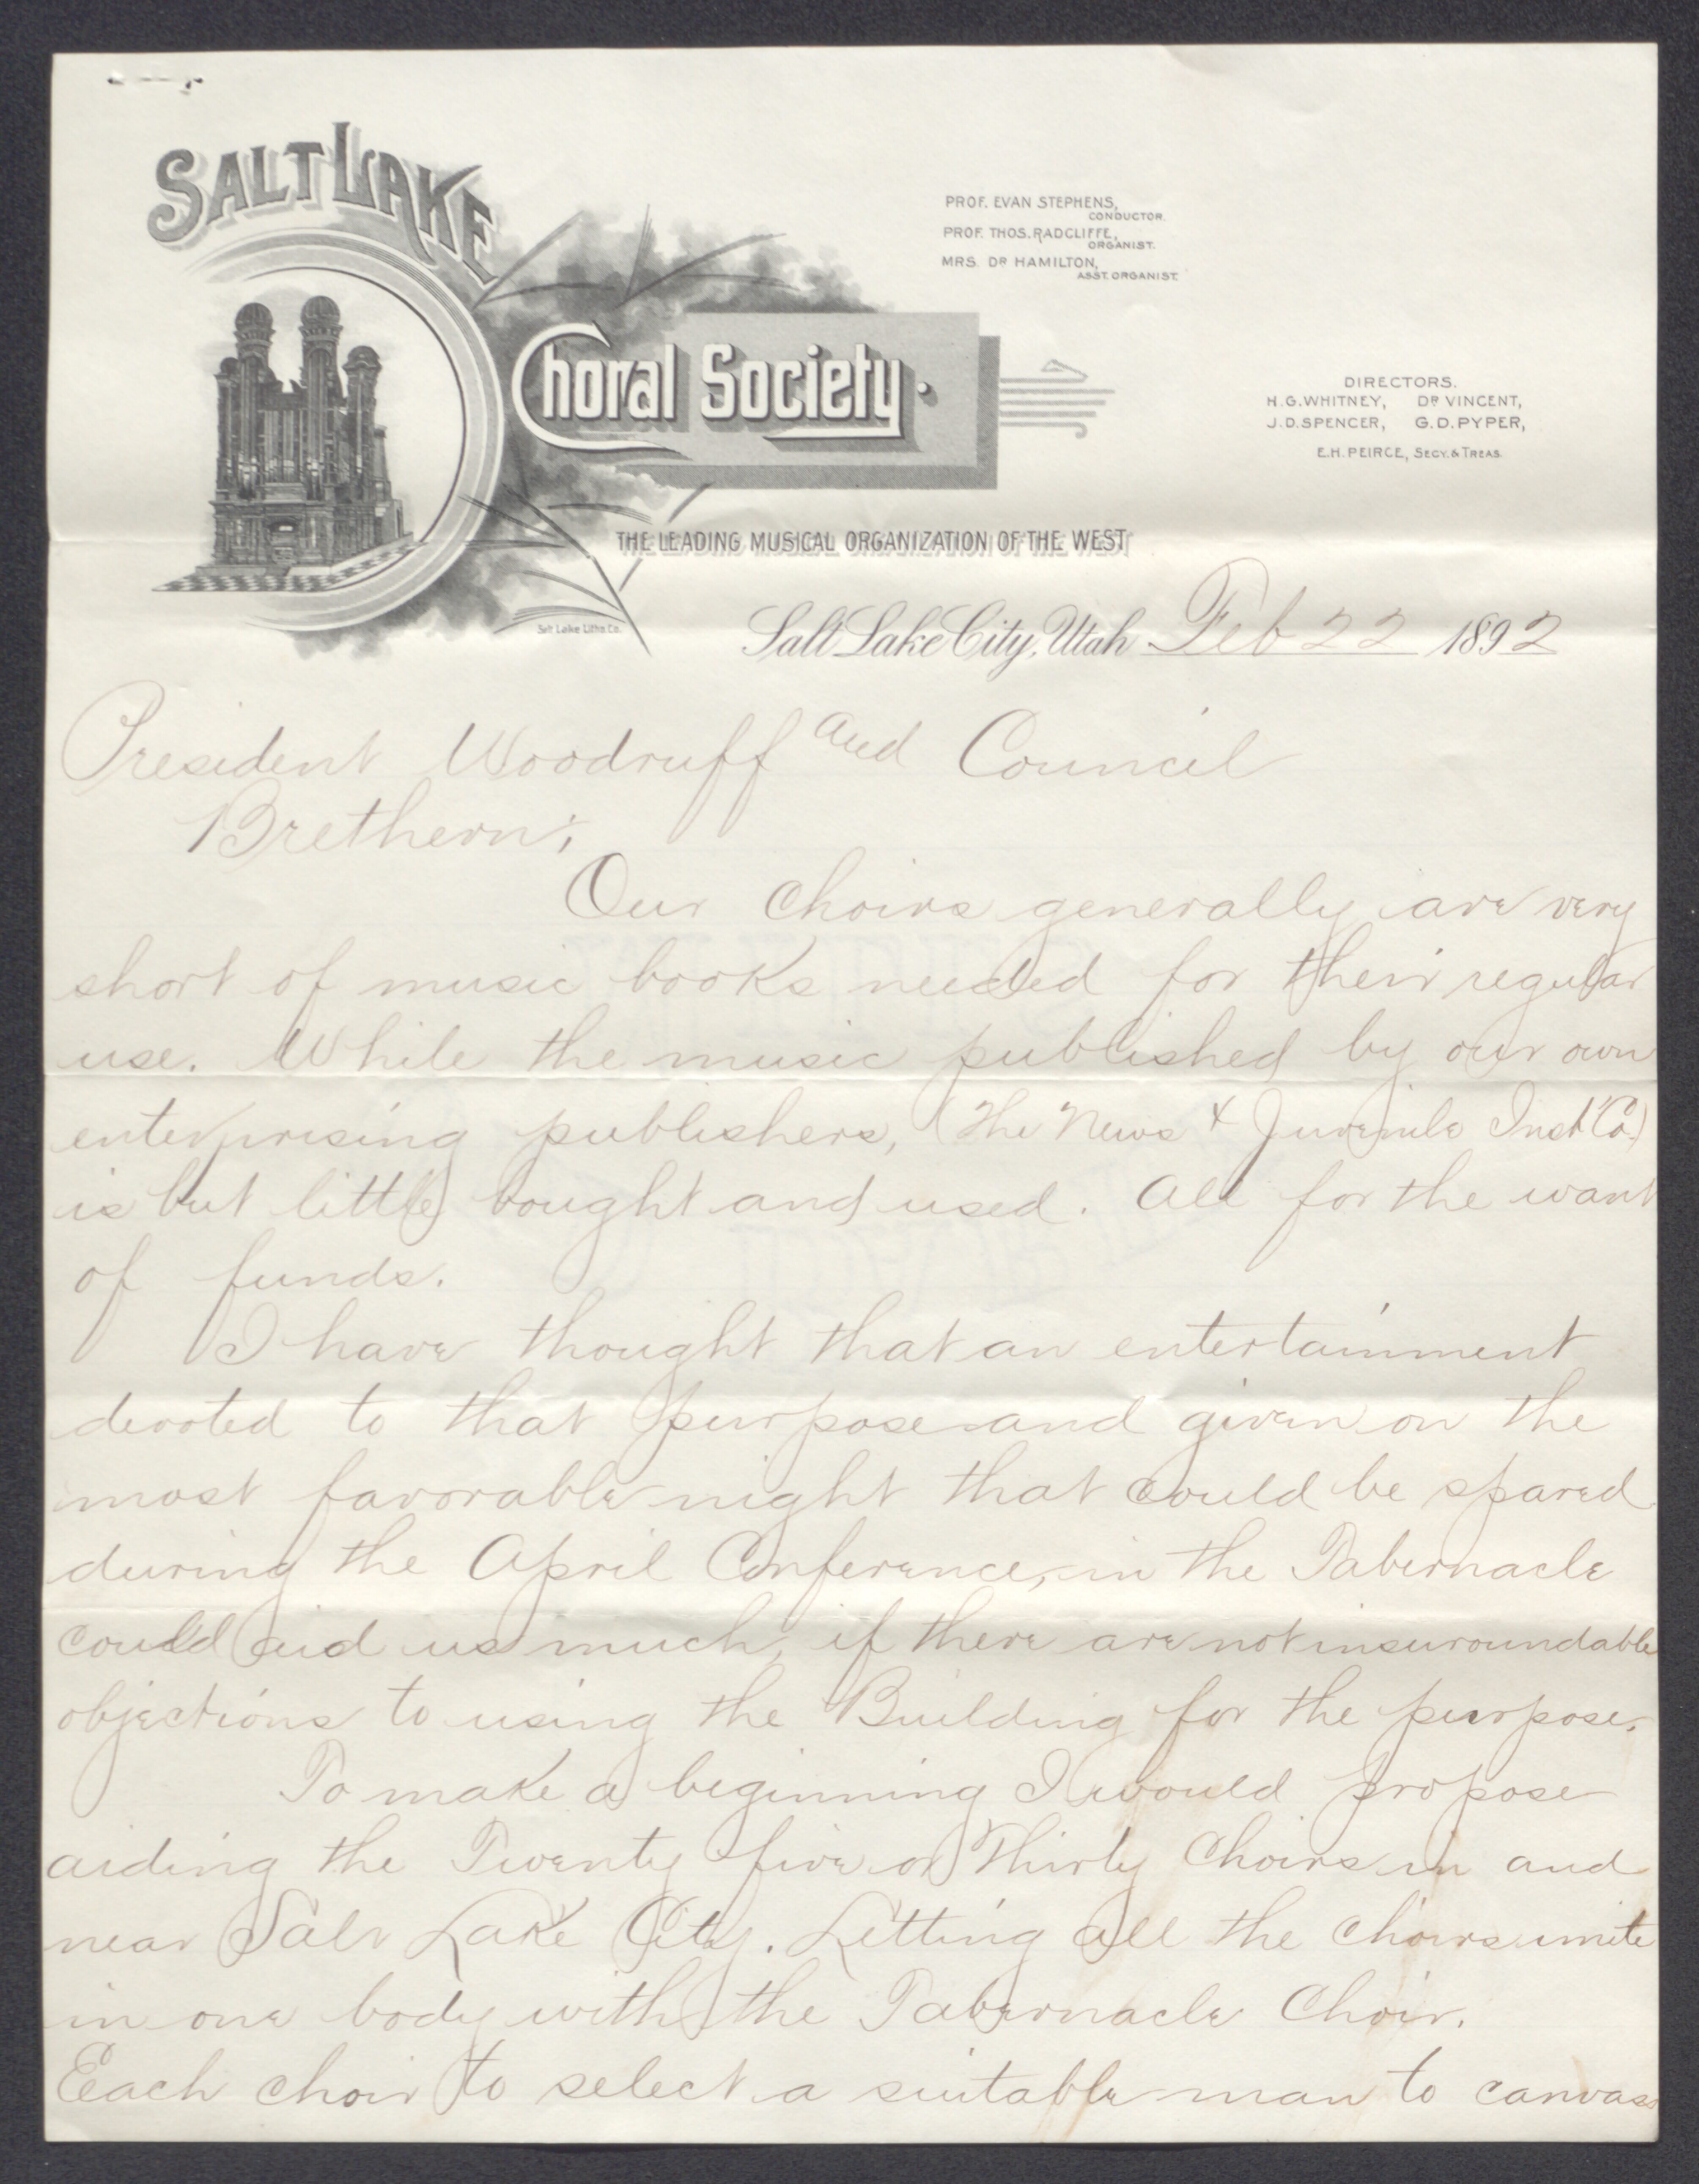 SALT LAKE
Choral Society.
THE LEADING MUSICAL ORGANIZATION OF THE WEST
Salt Lake Litho Co.
PROF. EVAN STEPHENS,
CONDUCTOR.
PROF. THOS. RADCLIFFE,
ORGANIST.
MRS. DR HAMILTON,
ASST. ORGANIST.
DIRECTORS.
H.G. WHITNEY, DR VINCENT,
J.D. SPENCER, G.D. PYPER,
E.H. PEIRCE, SECY. & TREAS.
Salt Lake City, Utah Feb 22 1892
President Woodruff and Council
Brethern;
Our Choirs generally are very
short of music books needed for their regular
use. While the music published by our own
enterprising publishers, (The News & Juvenile Inst Co.)
is but little bought and used. All for the want
of funds.
I have thought that an entertainment
devoted to that purpose and given on the
most favorable night that could be spared
during the April Conference, in the Tabernacle
could aid us much, if there are not insuroundable
objections to using the Building for the purpose.
To make a beginning I would propose
aiding the Twenty five or Thirty Choirs in and
near Salt Lake City. Letting all the Choirs unite
in one body with the Tabernacle Choir.
Each choir to select a suitable man to canvass